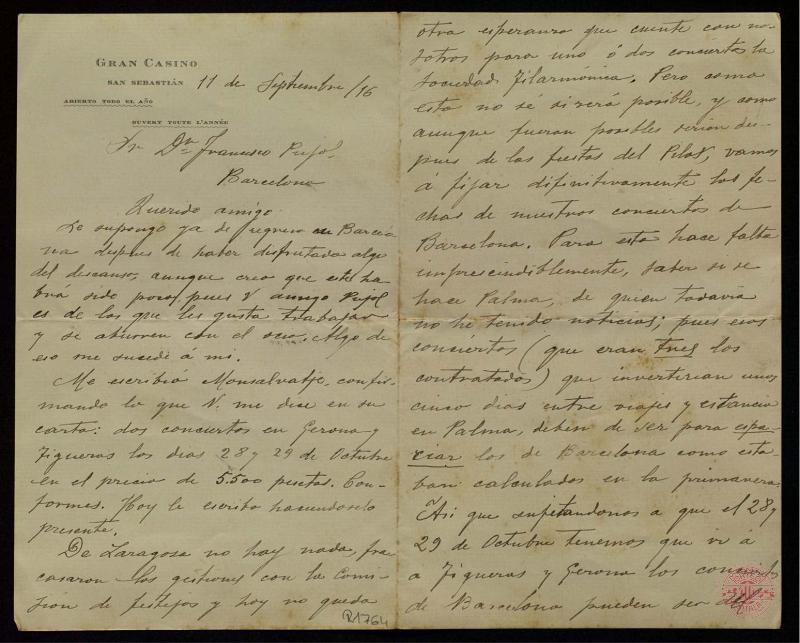 GRAN CASINO
SAN SEBASTIÁN
11 de Septiembre/16
ABIERTO TODO EL AÑO
OUVERT TOUTE L'ANNÉE
Sr Dn Francisco Pujol
Barcelona
Querido amigo.
Le supongo ya de regreso en Barcelo
na despues de haber disfrutado algo
del descanso, aunque creo que este ha
brá sido poco, pues V amigo Pujol
es de los que les gusta trabajar
y se aburren con el ocio. Algo de
eso me sucede á mi.
Me escribió Monsalvatje, confir-
mando lo que V. me dice en su
carta: dos conciertos en Gerona y
Figueras los dias 28 y 29 de Octubre
en el precio de 5.500 pesetas. Con-
formes. Hoy le escribo haciendoselo
presente.
De Zaragoza no hay nada, fra
casaron las gestiones con la Comi-
sion de festejos y hoy no queda
R1764
otra esperanza que cuente con no-
sotros para uno ó dos conciertos la
Sociedad Filarmónica. Pero como
esto no se si será posible, y como
aunque fueran posibles serian des-
pues de las fiestas del Pilar, vamos
á fijar difinitivamente las fe-
chas de nuestros conciertos de
Barcelona. Para esto hace falta
imprescindiblemente, saber si se
hace Palma, de quien todavia
no he tenido noticias; pues esos
conciertos (que eran tres los
contratados) que invertirian unos
cinco dias entre viajes y estancia
en Palma, deben de ser para espa-
ciar los de Barcelona como esta
ban calculados en la primavera.
Asi que sujetandonos a que el 28 y
29 de Octubre tenemos que ir á
a Figueras y Gerona los conciertos
de Barcelona pueden ser